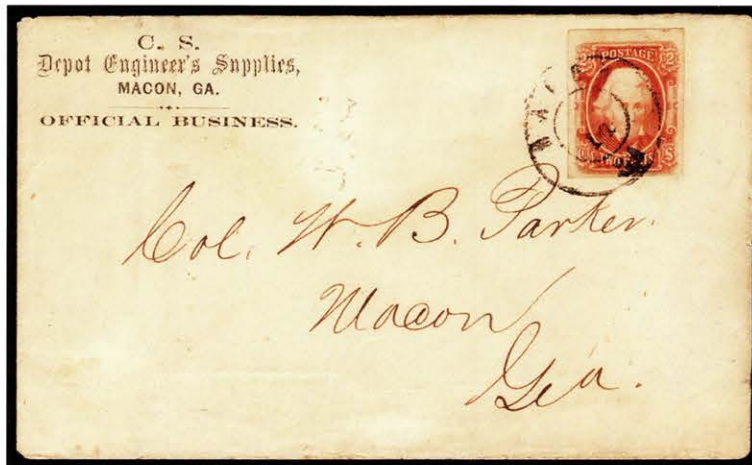 C. S.
Depot Engineer's Supplies,
MACON, GA.
OFFICIAL BUSINESS.
POSTAGE
2 2
TWO
Col. W. B. Parker.
Macon
Geo.